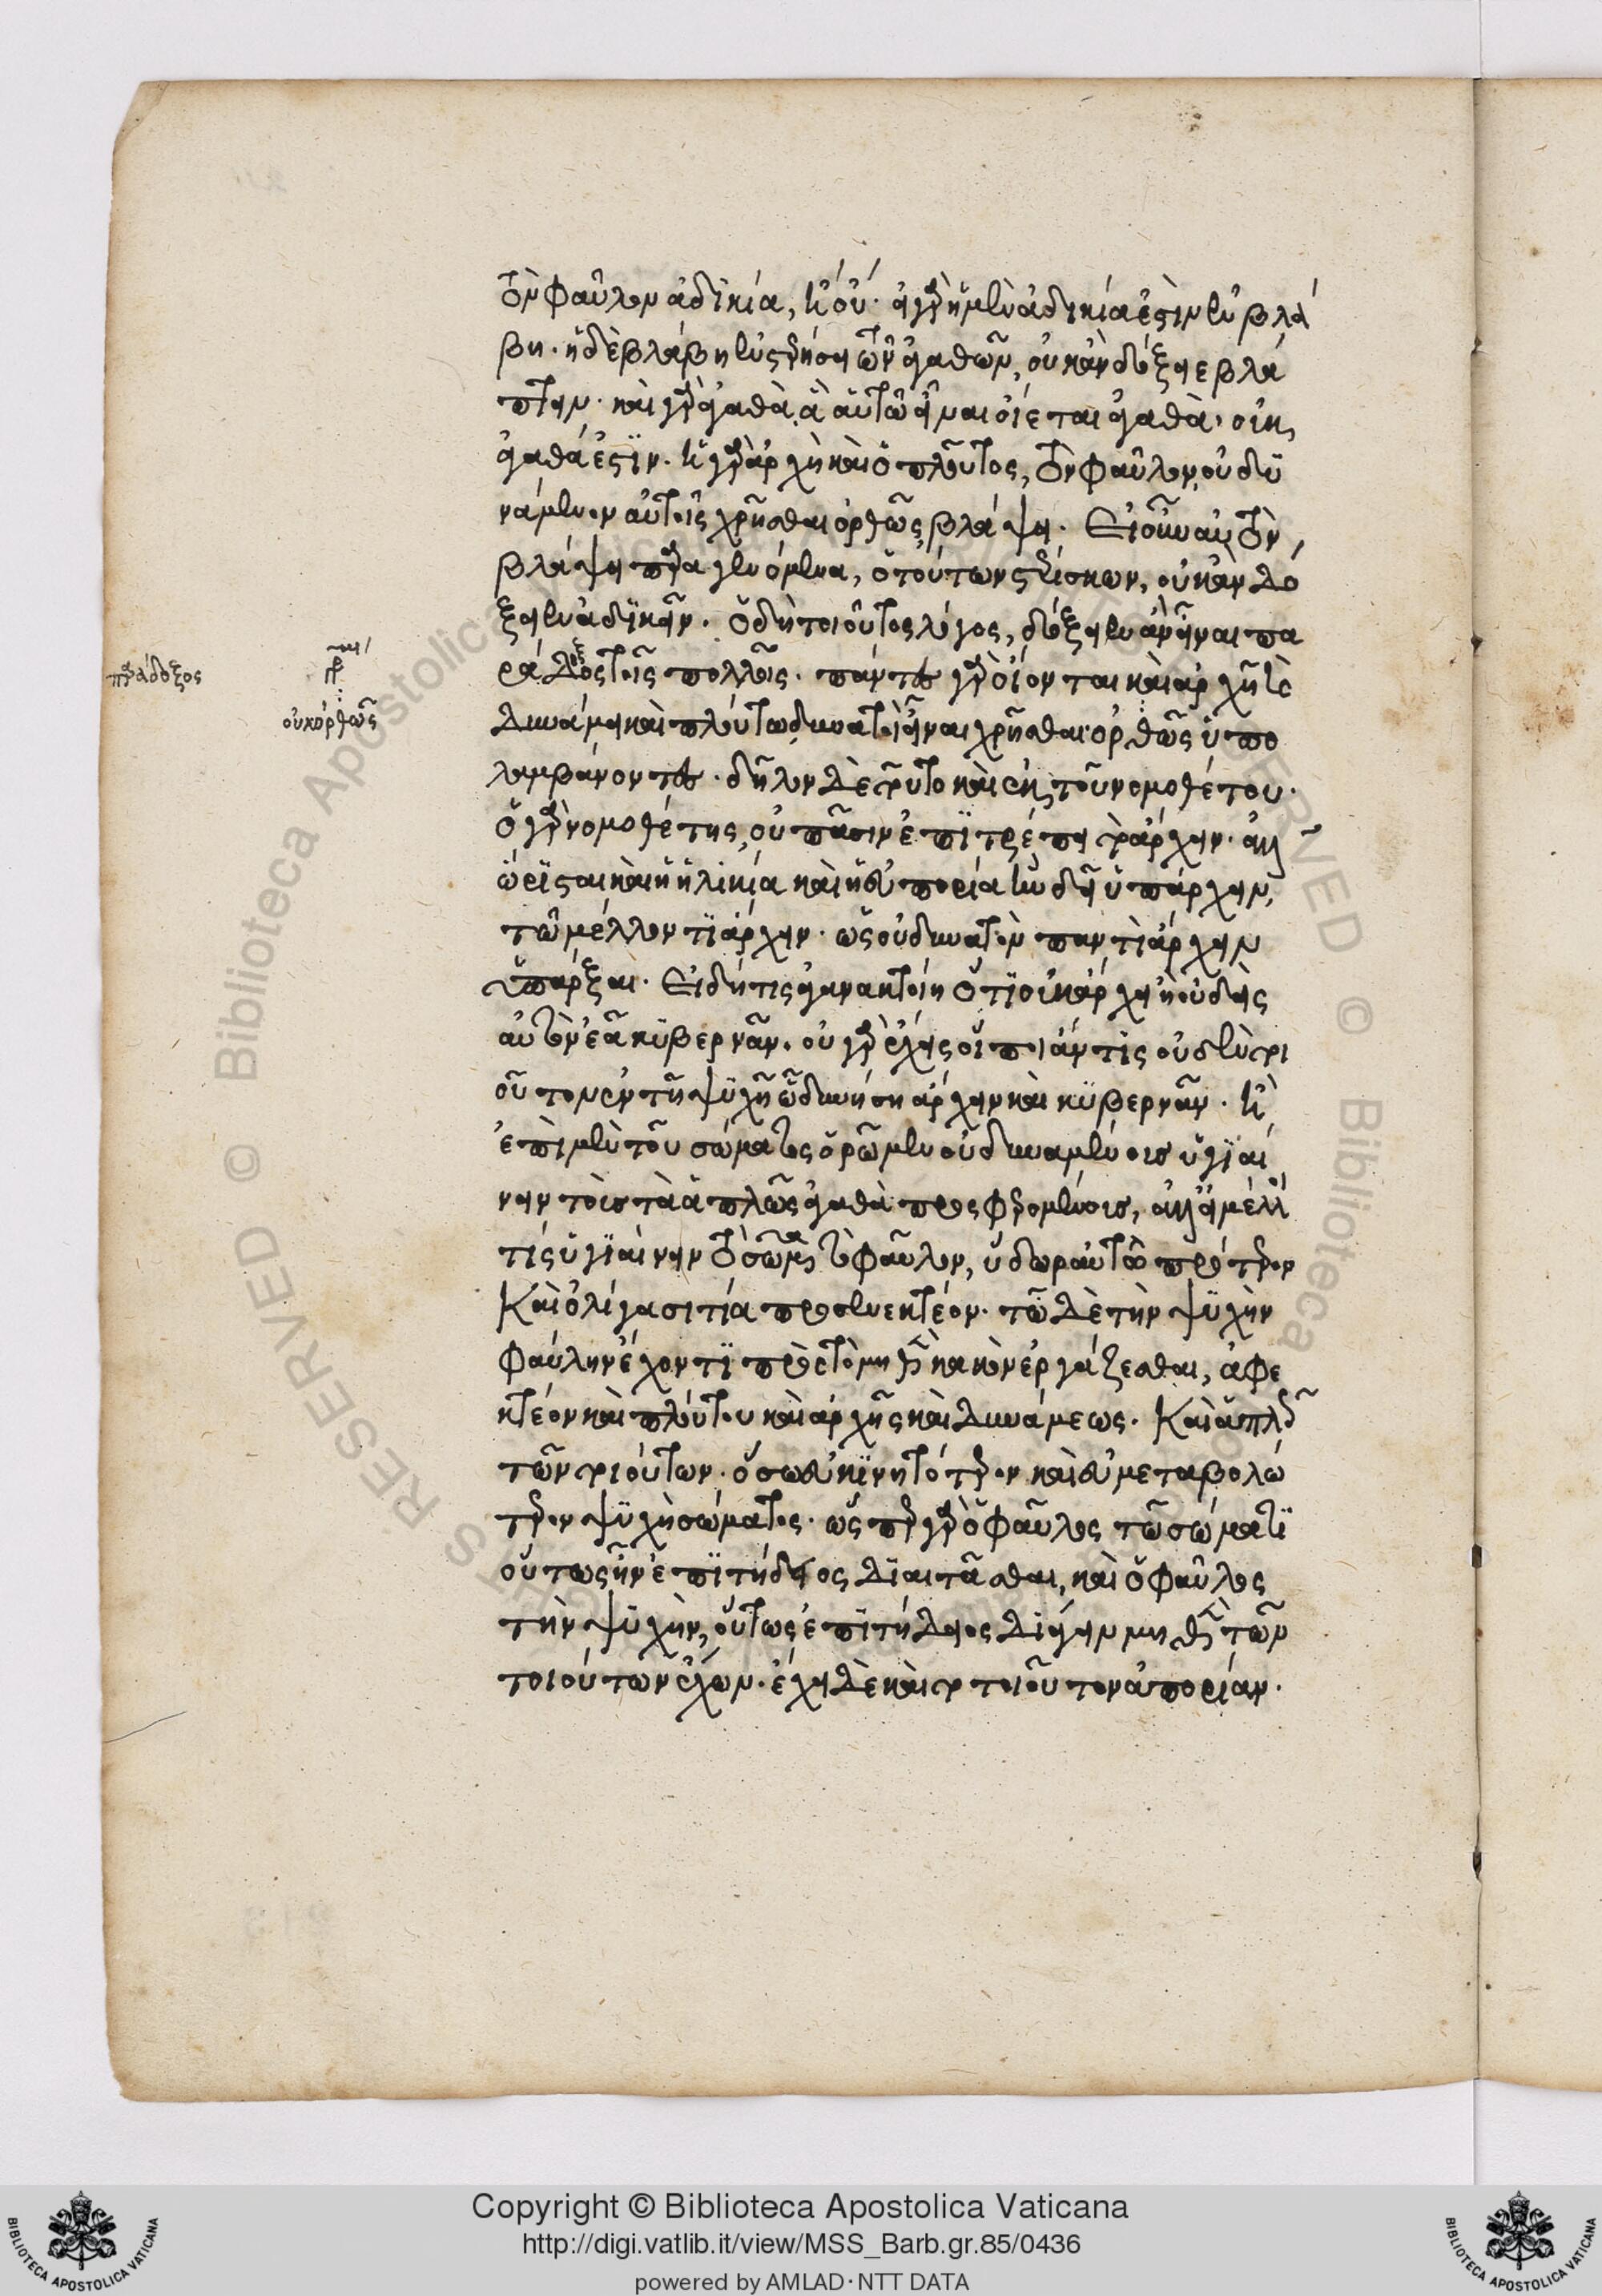 τὸν φαῦλον ἀδικία, ἢ οὔ· εἰ γὰρ ἡ μὲν ἀδικία ἐστὶν ἐν βλά
βη· ἡ δὲ βλάβη ἐν στερήσει τῶν ἀγαθῶν, οὐκ ἂν δόξειε βλά
πτειν· καὶ γὰρ ἀγαθὰ ἃ αὐτῷ εἶναι οἴεται ἀγαθὰ, οὐκ
ἀγαθά ἐστιν. ἡ γὰρ ἀρχὴ καὶ ὁ πλοῦτος, τὸν φαῦλον οὐ δυ
νάμενον αὐτοῖς χρῆσθαι ὀρθῶς βλάψει. Εἰ οὖν αὐτὸν
βλάψει παραγενόμενα, ὁ τούτων στερίσκων, οὐκ ἂν δό
ξειεν ἀδικεῖν. ὁ δὴ τοιοῦτος λόγος, δόξειεν ἂν εἶναι πα
ράδοξος τοῖς πολλοῖς. πάντες γὰρ οἴονται καὶ ἀρχῇ καὶ
δυνάμει καὶ πλούτῳ δυνατοὶ εἶναι χρῆσθαι· ὀρθῶς ὑπο
λαμβάνοντες. δῆλον δὲ τοῦτο καὶ ἐκ τοῦ νομοθέτου.
ὁ γὰρ νομοθέτης, οὐ πᾶσιν ἐπιτρέπει τὸ ἄρχειν. ἀλλ'
ὥρισται καὶ ἡ ἡλικία καὶ ἡ εὐπορία ἣν δεῖ ὑπάρχειν,
τῷ μέλλοντι ἄρχειν. ὡς οὐ δυνατὸν παντὶ ἄρχειν
ὑπάρξαι. Εἰ δή τις ἀγανακτοίη ὅτι οὐκ ἄρχει ἢ οὐδεὶς
αὐτὸν ἐᾷ κυβερνᾶν. οὐ γὰρ ἔχεις οἴποι ἄν τις οὐδὲν τοι
οῦτον ἐν τῇ ψυχῇ ᾧ δυνήσῃ ἄρχειν καὶ κυβερνᾶν. ἢ
ἐπὶ μὲν τοῦ σώματος ὁρῶμεν οὐ δυναμένοις ὑγιαί
νειν τοῖς τὰ ἁπλῶς ἀγαθὰ προσφερομένοις, ἀλλ' εἰ μέλλει
τις ὑγιαίνειν τὸ σῶμα τὸ φαῦλον, ὕδωρ αὐτῷ πρότερον
Καὶ ὀλίγα σιτία προσενεκτέον. τῷ δὲ τὴν ψυχὴν
φαύλην ἔχοντι πρὸς τὸ μηθὲν κακὸν ἐργάζεσθαι, ἀφε
κτέον καὶ πλούτου καὶ ἀρχῆς καὶ δυνάμεως. Καὶ ἁπλῶς
τῶν τοιούτων. ὅσῳ εὐκινητότερον καὶ εὐμεταβολώ
τερον ψυχὴ σώματος. ὥσπερ γὰρ ὁ φαῦλος τῷ σώματι
οὕτως ἦν ἐπιτήδειος διαιτᾶσθαι, καὶ ὁ φαῦλος
τὴν ψυχὴν, οὕτως ἐπιτήδειος διάγειν μηθὲν τῶν
τοιούτων ἔχων. ἔχει δὲ καὶ τὸ τοιοῦτον ἀπορίαν.
παράδοξος
οὐκ ὀρθῶς
Copyright © Biblioteca Apostolica Vaticana
http://digi.vatlib.it/view/MSS_Barb.gr.85/0436
powered by AMLAD·NTT DATA